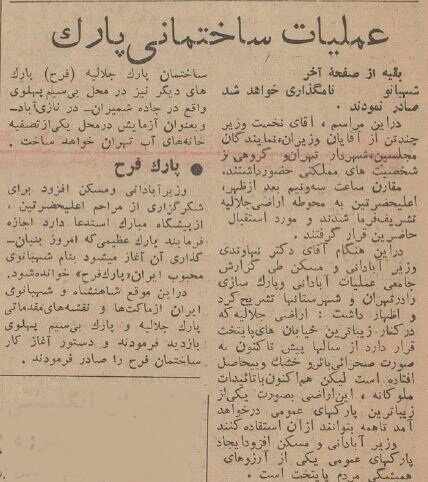 عملیات ساختمانی پارک
بقیه از صفحهٔ آخر
شهبانو نامگذاری خواهد شد
صادر نمودند .
دراین مراسم ، آقای نخست وزیر
چندتن از آقایان وزیران، نمایندگان
مجلسین، شهردار تهران و گروهی از
شخصیت های مملکتی حضورداشتند.
مقارن ساعت سه‌ونیم بعد ازظهر،
اعلیحضرتین به محوطه اراضی جلالیه
تشریف‌فرما شدند و مورد استقبال
حاضرین قرار گرفتند .
دراین هنگام آقای دکتر نهاوندی
وزیر آبادانی و مسکن طی گزارش
جامعی عملیات آبادانی وپارک سازی
رادرتهران و شهرستانها تشریح‌کرد
و اظهار داشت : اراضی جلالیه‌که
درکنار زیباترین خیابان های‌پایتخت
قرار دارد از سالها پیش تاکنون به
صورت صحرائی‌بائرو خشک وبیحاصل
افتاده است لیکن هم‌اکنون‌باتائیدات
ملوکانه ، این‌اراضی بصورت یکی‌از
زیباترین پارکهای عمومی درخواهد
آمد تاهمه بتوانند ازآن استفاده‌کنند
وزیر آبادانی و مسکن افزودایجاد
پارکهای عمومی یکی از آرزوهای
همیشگی مردم پایتخت است .
ساختمان پارک جلالیه (فرح) پارک
های دیگر نیز در محل بی‌سیم پهلوی
واقع در جاده شمیران - در نازی‌آباد-
وبعنوان آزمایش درمحل یکی‌ازتصفیه
خانه‌های آب تهران خواهد ساخت .
● پارک فرح
وزیرآبادانی ومسکن افزود برای
شکرگزاری از مراحم اعلیحضرتین ،
ازپیشگاه مبارک استدعا دارد اجازه
فرمایند پارک عظیمی‌که امروز بنیان-
گذاری آن آغاز میشود بنام شهبانوی
محبوب ایران «پارک‌فرح» خوانده‌شود.
دراین موقع شاهنشاه و شهبانوی
ایران ازماکت‌ها و نقشه‌های‌مقدماتی
پارک جلالیه و پارک بی‌سیم پهلوی
بازدید فرمودند و دستور آغاز کار
ساختمان فرح را صادر فرمودند .